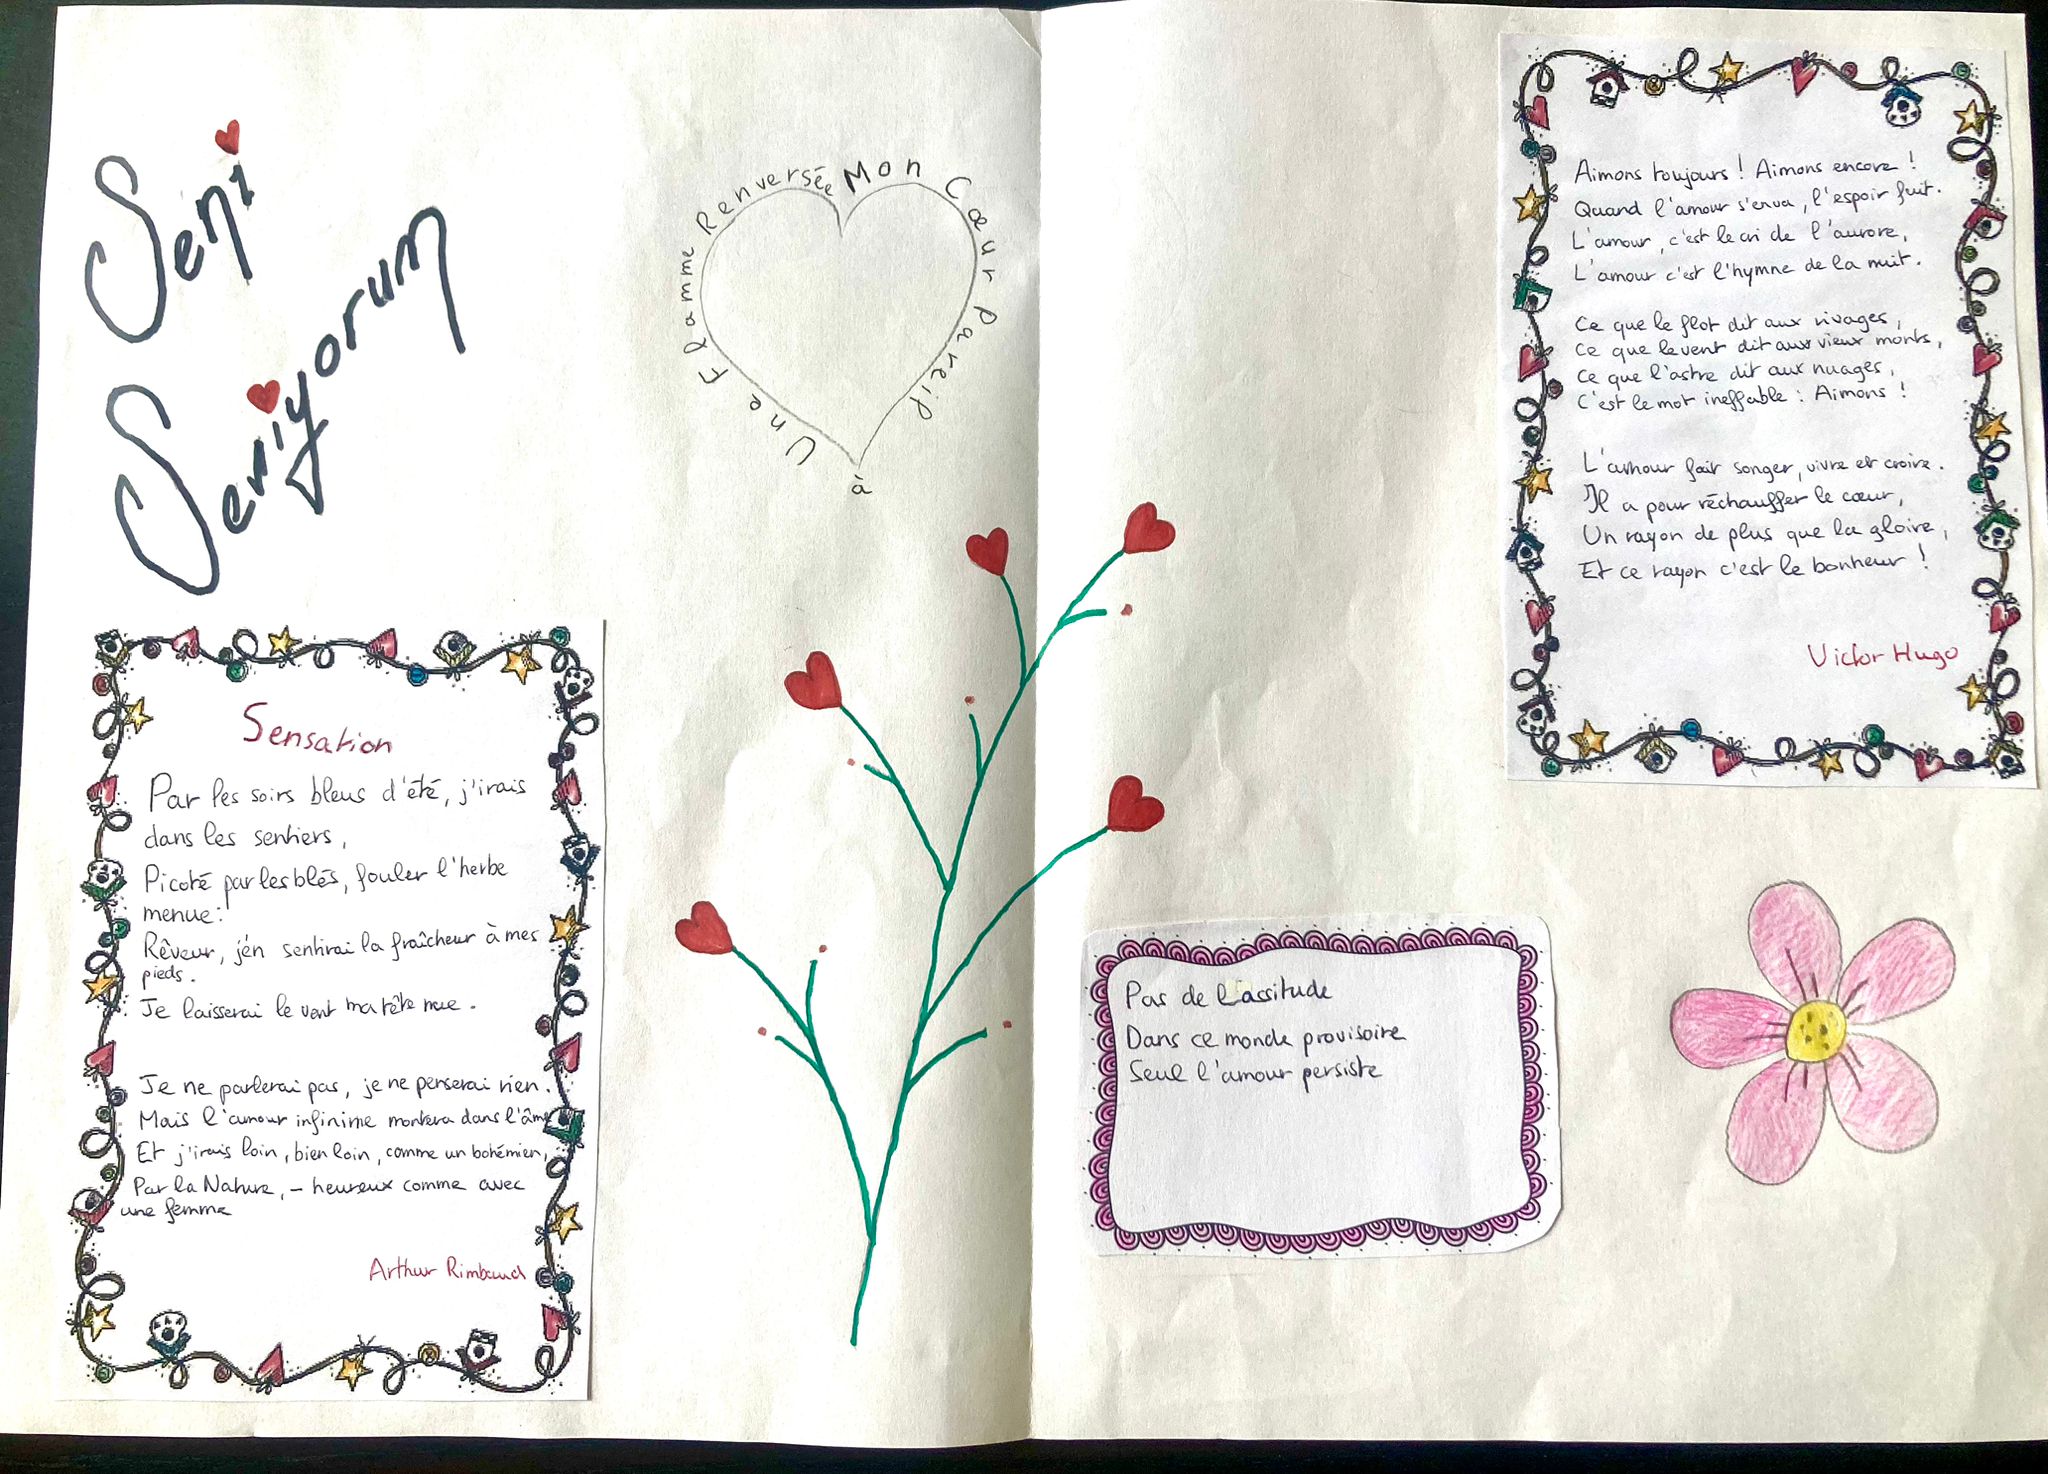 Seni
Seniyorum
Mon Cœur Pareil
à
Une Flamme Renversée
Sensation
Par les soirs bleus d'été, j'irais
dans les sentiers,
Picoté par les blés, fouler l'herbe
menue:
Rêveur, j'én sentirai la fraîcheur à mes
pieds.
Je laisserai le vent ma tête nue.
Je ne parlerai pas, je ne penserai rien.
Mais l'amour infinime montera dans l'âme
Et j'irais loin, bien loin, comme un bohémien,
Par la Nature, - heureux comme avec
une femme
Arthur Rimbaud
Aimons toujours ! Aimons encore !
Quand l'amour s'enva, l'espoir fuit.
L'amour, c'est le cri de l'aurore,
L'amour c'est l'hymne de la nuit.
Ce que le flot dit aux rivages,
Ce que le vent dit aux vieux monts,
Ce que l'astre dit aux nuages,
C'est le mot ineffable : Aimons !
L'amour fait songer, vivre et croire.
Il a pour réchauffer le cœur,
Un rayon de plus que la gloire,
Et ce rayon c'est le bonheur !
Victor Hugo
Pas de Lassitude
Dans ce monde provisoire
Seul l'amour persiste